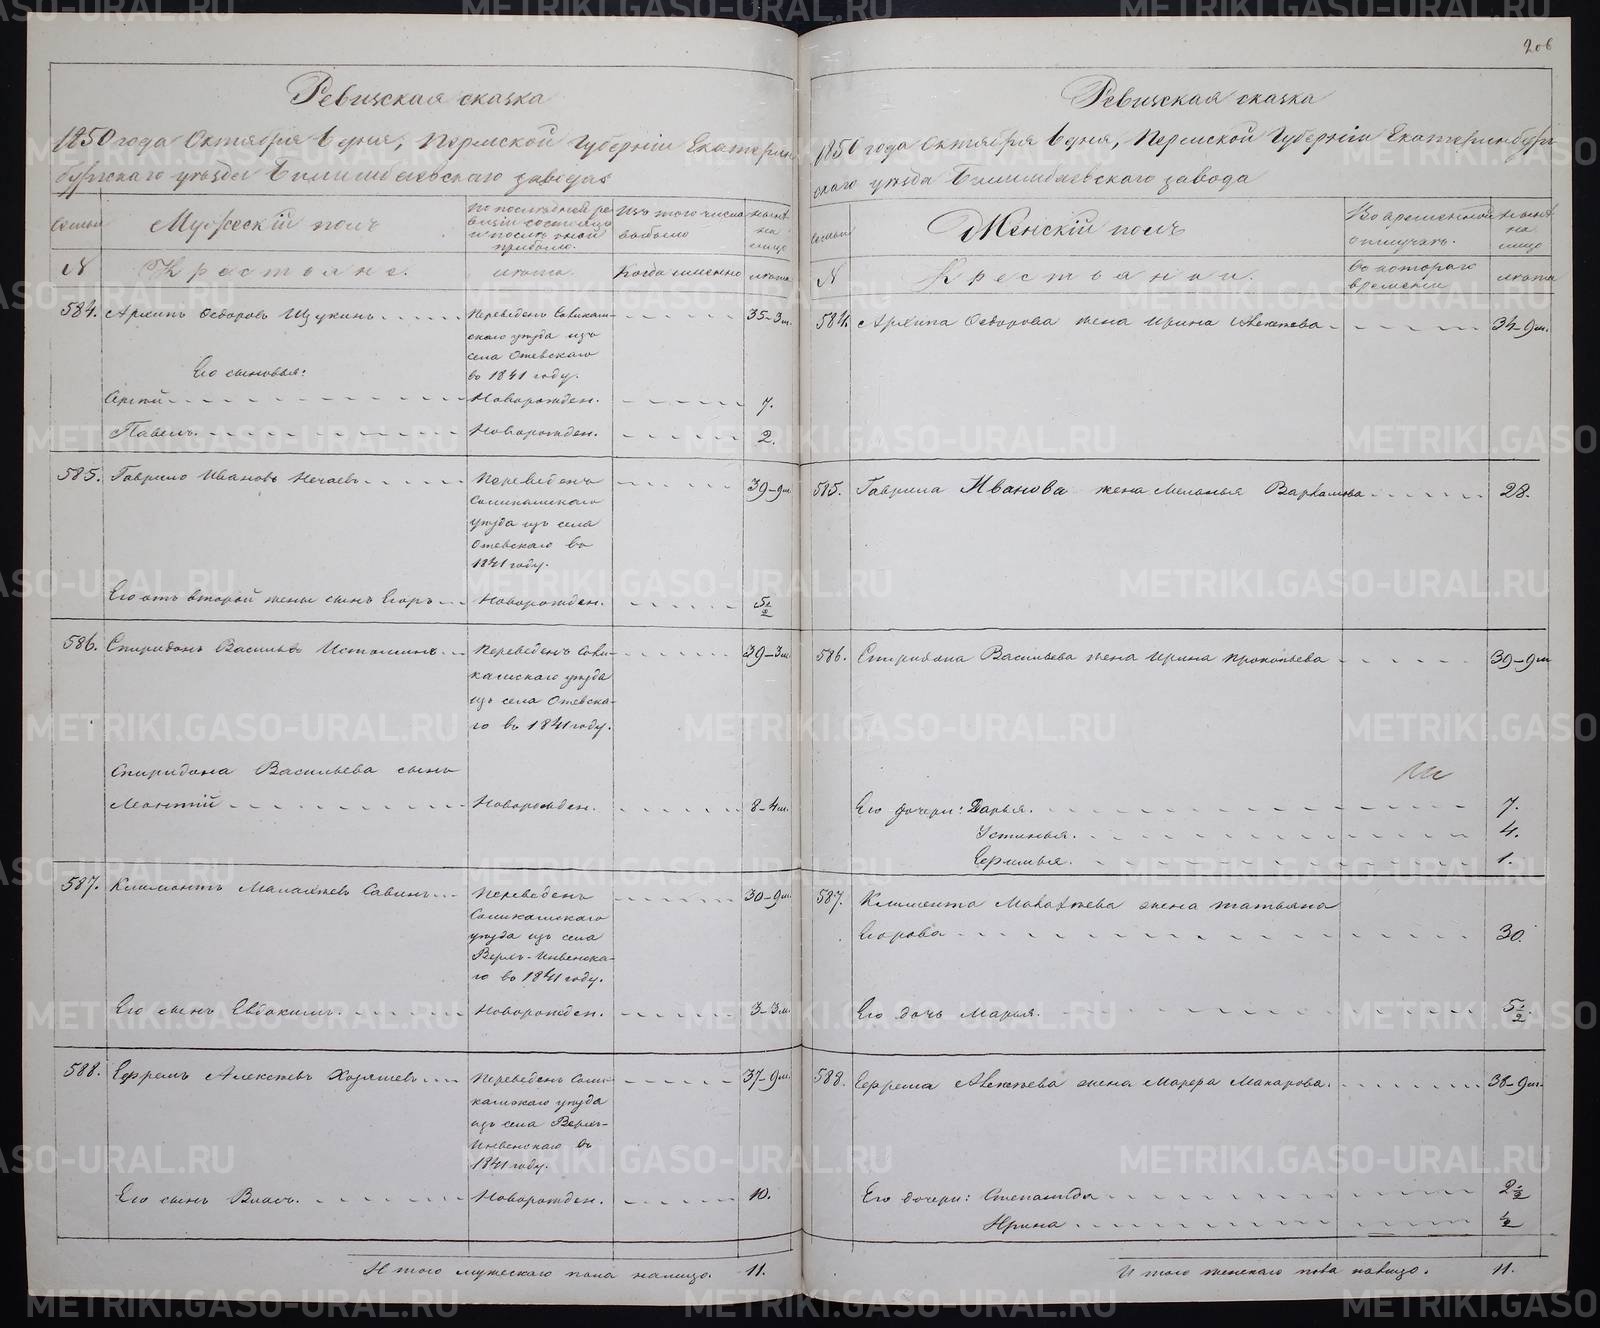 206
Ревизская сказка
1850 года Октября 6 дня, Пермской Губерніи Екатерин-
бургскаго уѣзда Билимбаевскаго завода
Семьи
Мужескій полъ
По послѣдней ре-
визіи состояло
и послѣ оной
прибыло.
Изъ того числа
выбыло
Нынѣ
на
лицо
N
Крестьяне.
лѣта.
Когда именно
лѣта
584. Архипъ Ѳедоровъ Щукинъ
Переведенъ Соликам-
скаго уѣзда изъ
села Отевскаго
въ 1841 году.
35-3м.
Его сыновья:
Новорожден.
7.
Павелъ.
Новорожден.
2.
585. Гаврило Ивановъ Нечаевъ
Переведенъ
Соликамскаго
уѣзда изъ села
Отевскаго въ
1841 году.
39-9м
Его отъ второй жены сынъ Егоръ
Новорожден.
5½
586. Спиридонъ Васильевъ Истоминъ
Переведенъ Соли-
камскаго уѣзда
изъ села Отевска-
го въ 1841 году.
39-3м
Спиридона Васильева сынъ
Леонтій
Новорожден.
8-4м.
587. Климентъ Малахѣевъ Савинъ
Переведенъ
Соликамскаго
уѣзда изъ села
Верхъ-Инвенска-
го въ 1841 году.
30-9м.
Его сынъ Евдокимъ.
Новорожден.
3-3м.
588. Ефремъ Алексѣевъ
Переведенъ Соли-
камскаго уѣзда
изъ села Верхъ-
Инвенскаго въ
1841 году.
37-9м.
Его сынъ Власъ.
Новорожден.
10.
Итого мужескаго пола налицо. 11.
Ревизская сказка
1850 года Октября 6 дня, Пермской Губерніи Екатеринбург-
скаго уѣзда Билимбаевскаго завода
Семьи
Женскій полъ
Во временной
отлучкѣ.
Нынѣ
на
лицо
N
Крестьянки.
Съ котораго
времени
лѣта
584. Архипа Ѳедорова жена Ирина Алексѣева
34-9м.
585. Гаврила Иванова жена Меланья Варламова
28.
586. Спиридона Васильева жена Ирина Прокопьева
39-9м
Его дочери: Дарья.
7.
Устинья.
4.
Ефимья.
1.
587. Климента Малахѣева жена Татьяна
Егорова
30.
Его дочь Марья.
5½
588. Ефрема Алексѣева жена Марфа Макарова.
38-9м.
Его дочери: Степанида
2½
Ирина
½
Итого женскаго пола налицо. 11.
METRIKI.GASO-URAL.RU